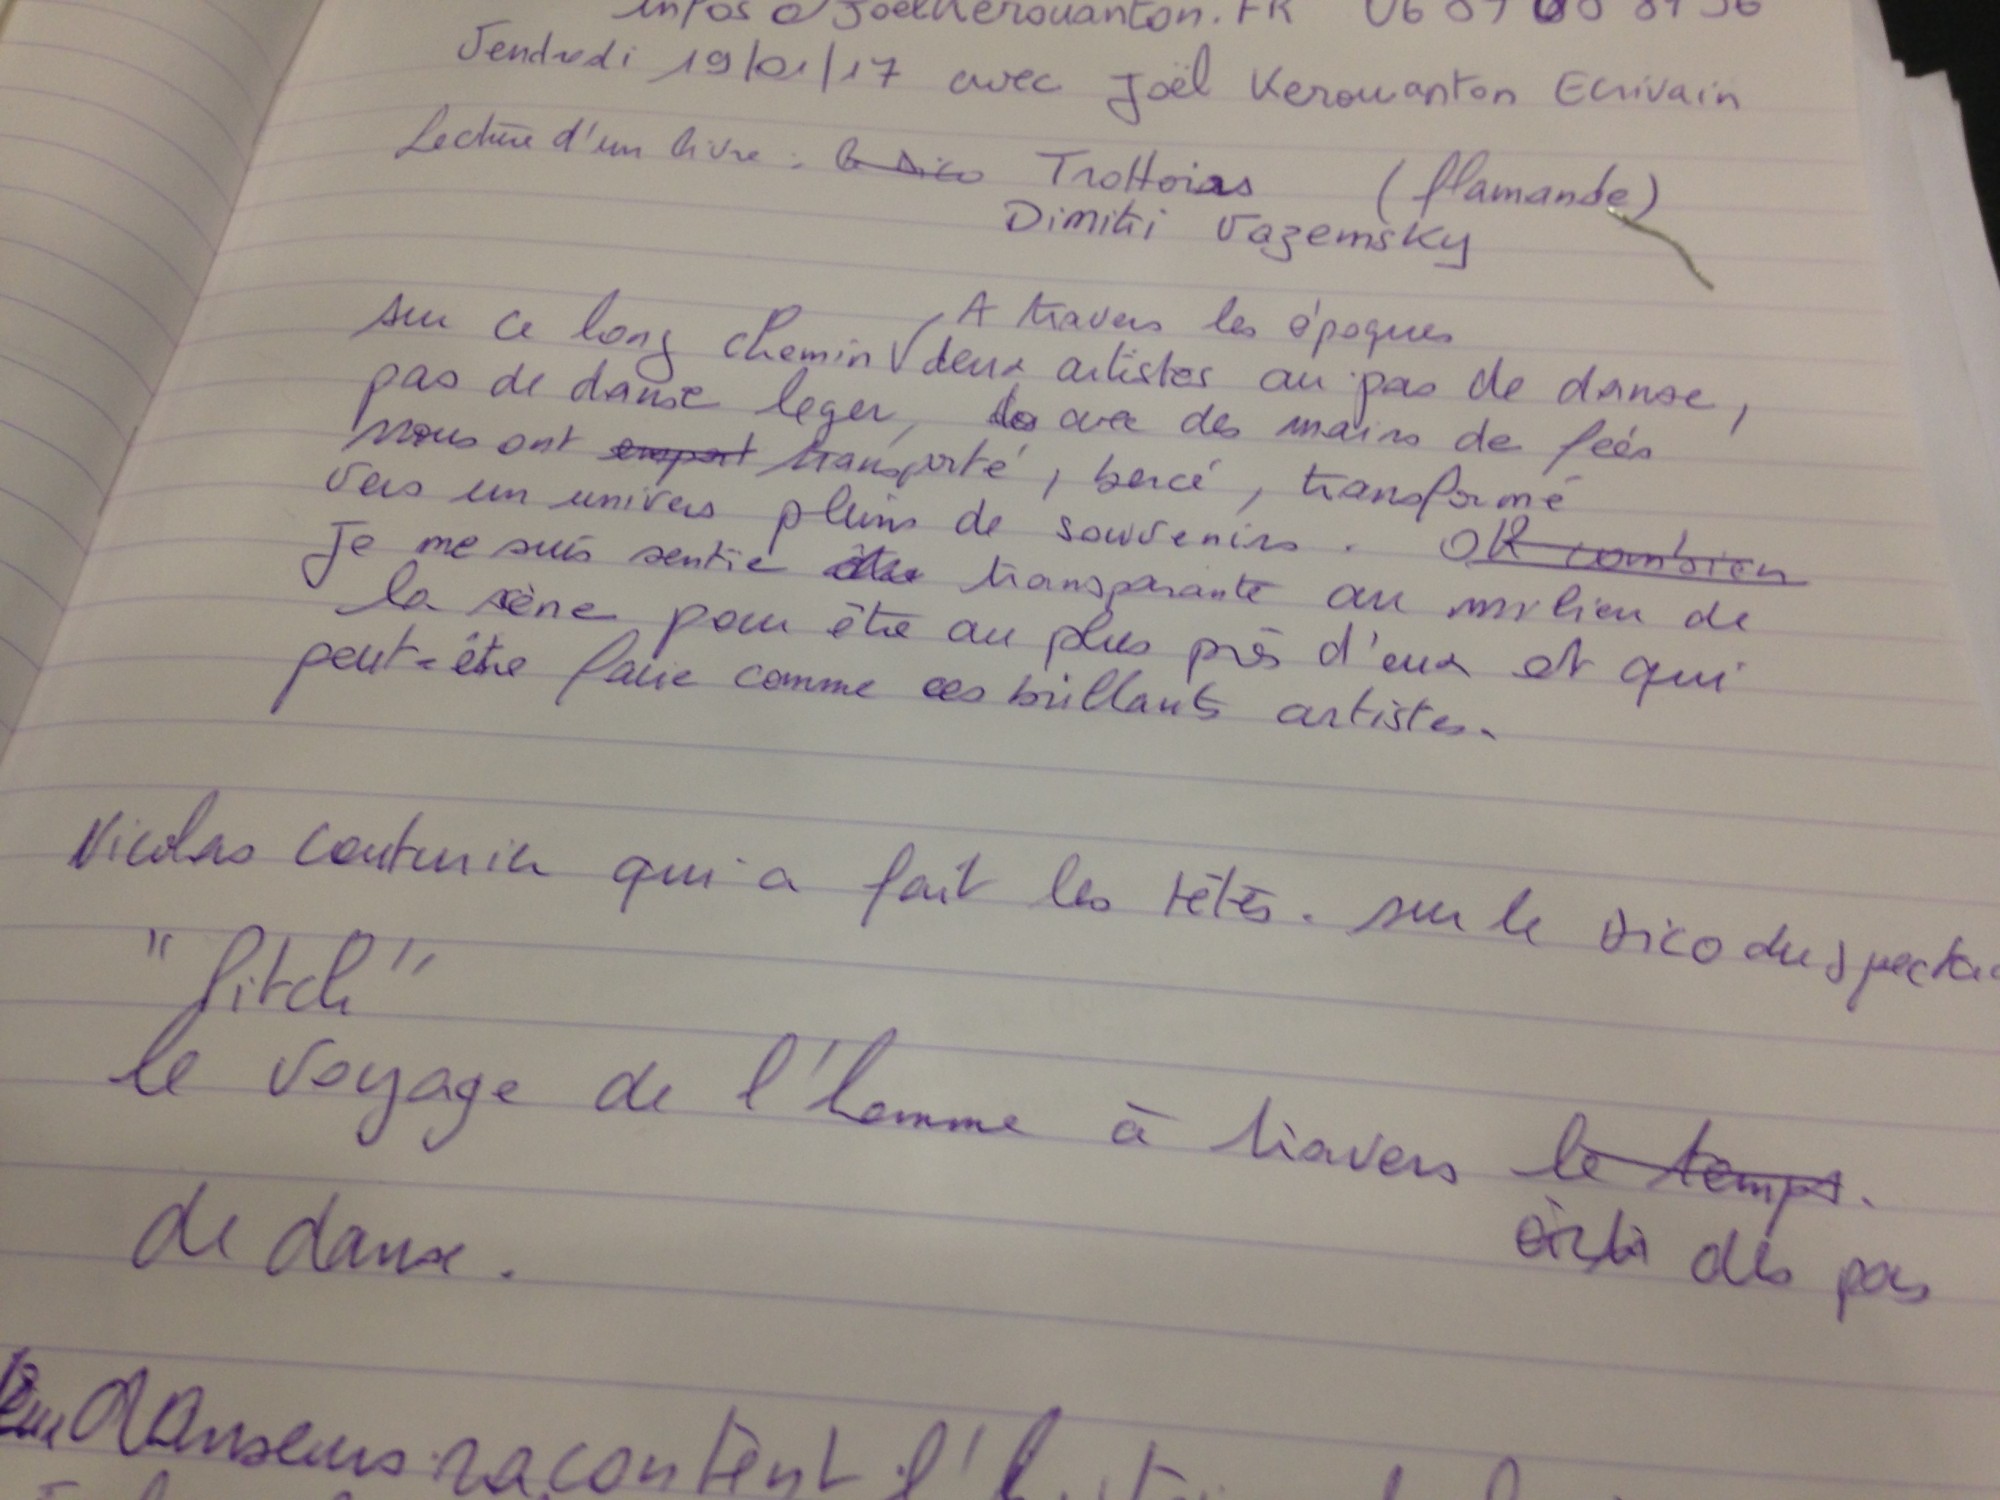 infos@joelkerouanton.FR 06
Vendredi 19/01/17 avec Joël Kerouanton Ecrivain
Lecture d'un livre : le Dico Trottoirs (flamande)
Dimitri Vazemsky
A travers les époques
sur ce long chemin deux artistes au pas de danse,
pas de danse leger, avec des mains de feés
nous ont emport transporté, bercé, transformé
vers un univers pleins de souvenirs. Oh combien
Je me suis sentie être transparante au milieu de
la scène pour être au plus près d'eux et qui
peut-être faire comme ces brillants artistes.
Nicolas qui a fait les têtes. sur le Dico du specta
"Pitch"
le voyage de l'homme à travers le temps.
des pas
de danse.
danseurs racontent l'